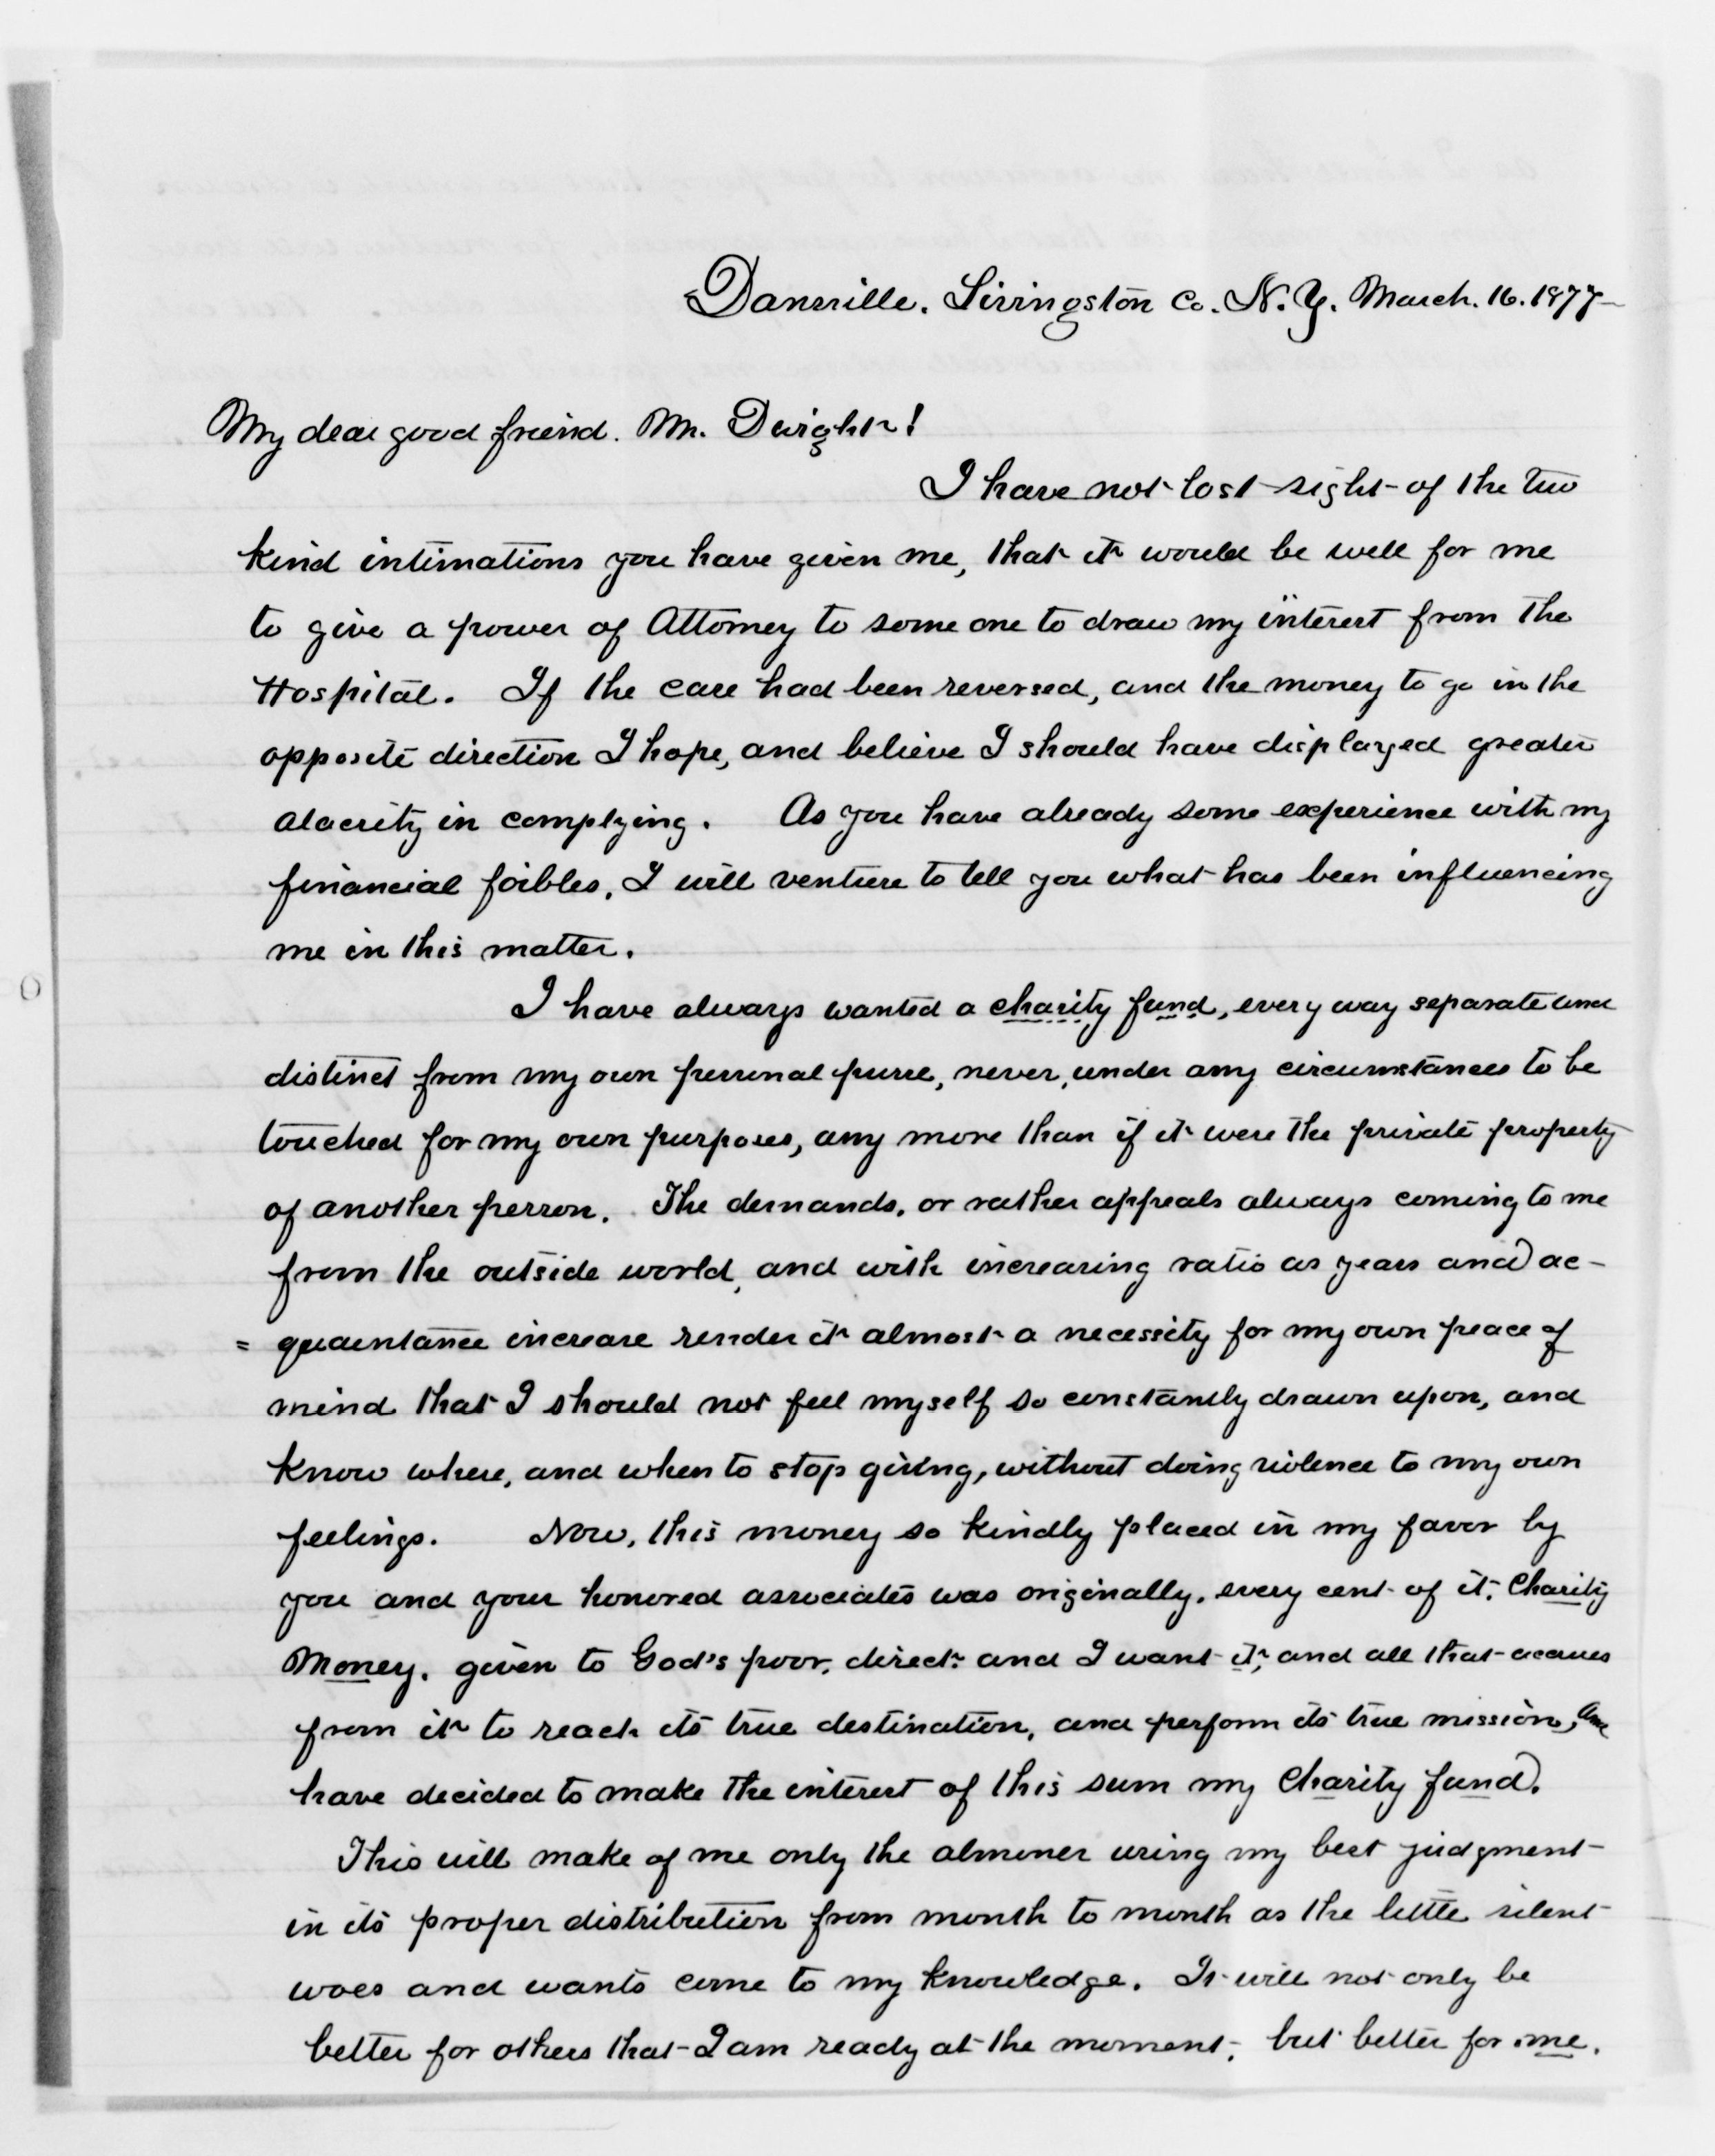 Dansville. Livingston Co. N.Y. March. 16. 1877
My dear good friend. Mr. Dwight!
I have not lost sight of the two
kind intimations you have given me, that it would be well for me
to give a power of Attorney to some one to draw my interest from the
Hospital. If the case had been reversed, and the money to go in the
opposite direction I hope, and believe I should have displayed greater
alacrity in complying. As you have already some experience with my
financial foibles, I will venture to tell you what has been influencing
me in this matter.
I have always wanted a charity fund, every way separate and
distinct from my own personal purse, never, under any circumstances to be
touched for my own purposes, any more than if it were the private property
of another person. The demands, or rather appeals always coming to me
from the outside world, and with increasing ratio as years and ac-
= quaintance increase render it almost a necessity for my own peace of
mind that I should not feel myself so constantly drawn upon, and
know where, and when to stop giving, without doing violence to my own
feelings. Now, this money so kindly placed in my favor by
you and your honored associates was originally, every cent of it, Charity
Money, given to God's poor, direct, and I want it, and all that accrues
from it to reach its true destination, and perform its true mission, and
have decided to make the interest of this sum my Charity fund.
This will make of me only the almoner using my best judgment
in its proper distribution from month to month as the little silent
woes and wants come to my knowledge. It will not only be
better for others that I am ready at the moment, but better for me.